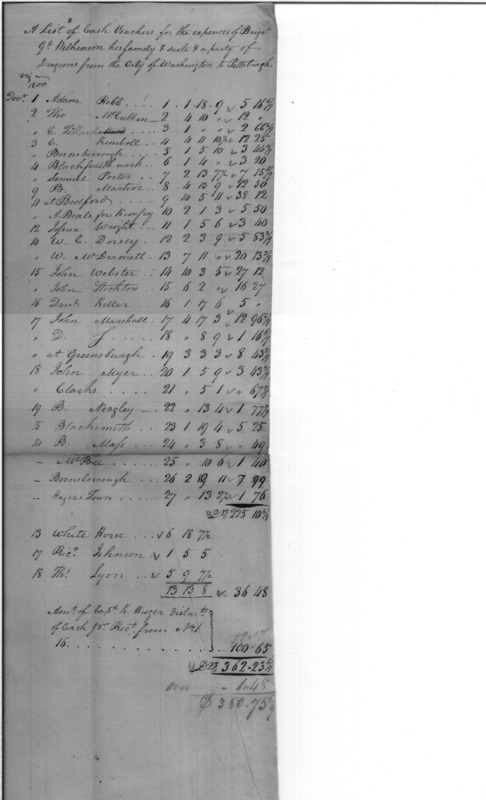 A List of Cash Vouchers for the expences of Brigr
Gl. Wilkinson his family & suite & a party of
Dragoons from the City of Washington to Pittsburgh
1800
Decr. 1 Adam Robb . . . 1 . 1 . 18 . 9 5 16
2 Tho McCubbin . 2 4 10 " 12 "
" C. 3 1 " " 2 66
3 C. Kimboll . . 4 4 11 12 25
" Bornsborough . . . 5 1 5 10 3 44
4 Blacksmith work . . 6 1 4 " 3 20
" Samuel Porter . . 7 2 13 7 15
9 B. Martin . 8 4 13 9 12 50
11 at Bedford . . . 9 14 5 11 38 12
" A. Beals for Kimsey 10 2 1 3 5 50
12 Joshua Wright . 11 1 5 6 3 40
14 W. C. Dorsey . . 12 2 3 9 5 83
" W. McDermett . 13 7 11 " 20 13
15 John Webster . 14 10 3 5 27 12
" John Stockton . 15 6 2 " 16 27
16 Danl. Keller . . 16 1 17 6 5 "
17 John Marshall . 17 4 17 3 12 96
" D. J . . . 18 " 8 9 1 16
" at Greensburgh . 19 3 3 3 8 43
18 John Myer . . 20 1 5 9 3 43
" Clarks . . . . . 21 . 5 1 67
19 B. Neagley — . . 22 . 13 4 1 77
15 Blacksmith . . . 23 1 19 4 5 25
14 B. Mass . . 24 . 3 8 . 49
– McBee . . . . . 25 . 10 6 1 40
– Bornsborough . . . 26 2 19 11 7 99
" Hagers Town . . . 27 . 13 2 1 76
225 10
13 White Horse . . 6 18 7½
17 Rec. Johnson 1 5 5
18 Th. Lyon . . 5 9 7½
13 13 8 36 48
Amt. of Capt. H. Huger Disbts.
of Cash pr. Rect. from No 1
16 . . . . . . . . . . . . . 100 65
362.23
over – 1.48
$ 360.75